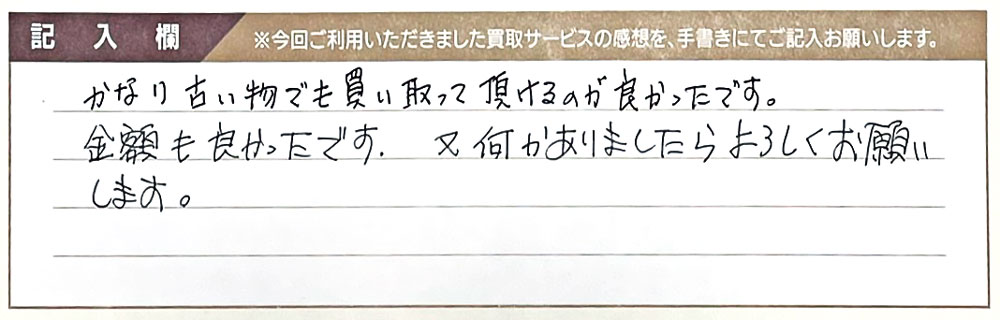 記入欄 ※今回ご利用いただきました買取サービスの感想を、手書きにてご記入お願いします。
かなり古い物でも買い取って頂けるのが良かったです。
金額も良かったです. 又何かありましたらよろしくお願い
します。